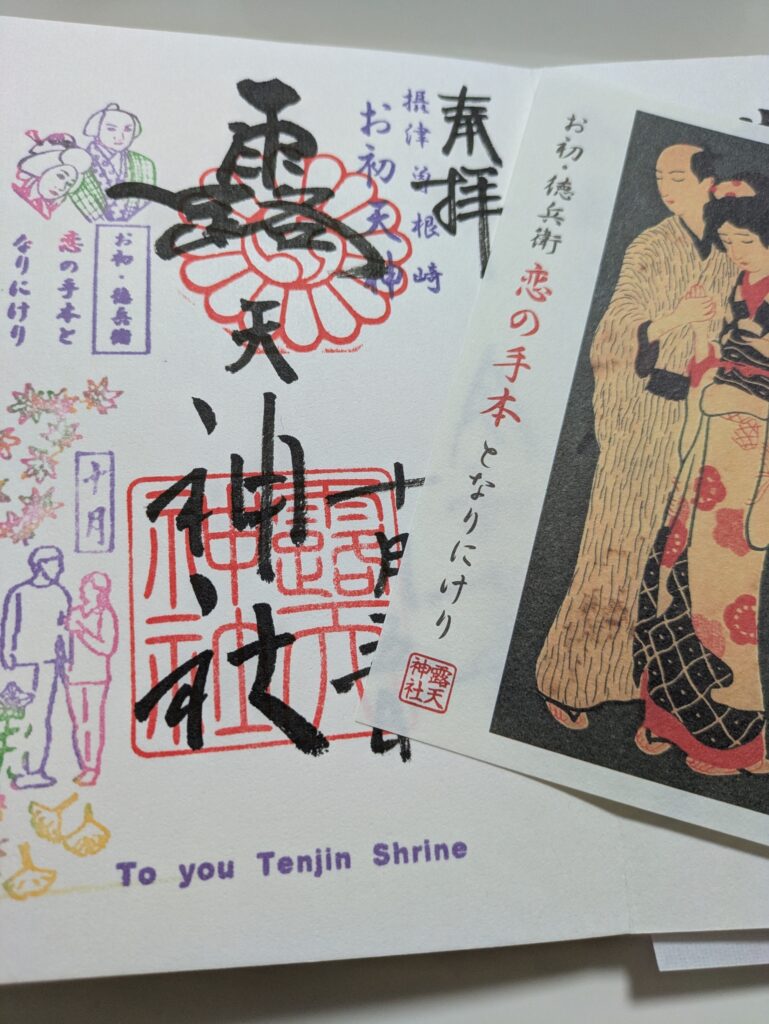 奉拝
摂津 曽根崎
お初天神
露天神社
露天
神社
十月
お初・徳兵衛
恋の手本と
なりにけり
十月
To you Tenjin Shrine
お初・徳兵衛 恋の手本となりにけり
露天
神社